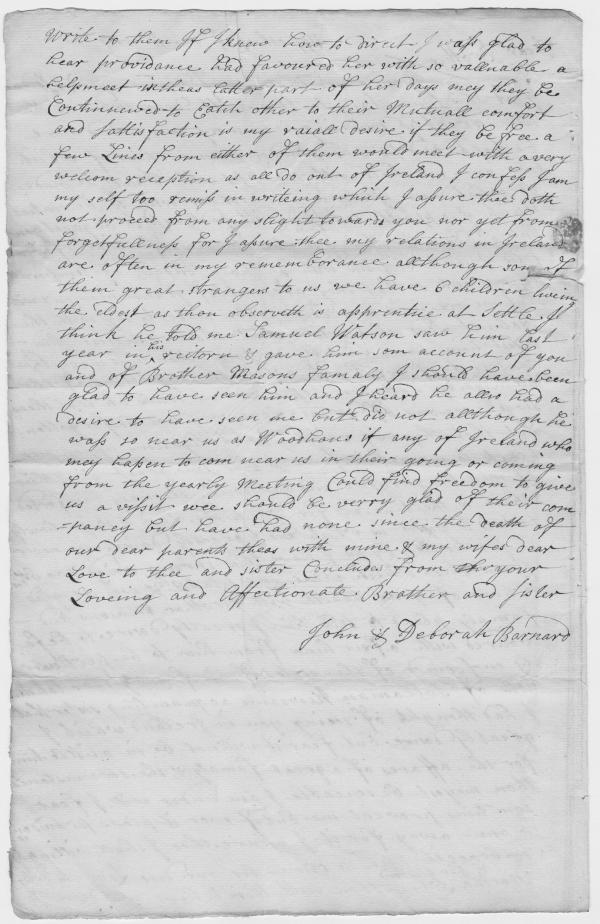 write to them If I knew how to direct I wass glad to
hear providance had favoured her with so vallnable a
helpmeet in theas latter part of her days mey they be
Continnewed to Eatch other to their Mutuall comfort
and sattisfaction is my raiall desire if they be free a
few Lines from either of them would meet with a very
welcom reception as all do out of Ireland I confess I am
my self too remiss in writeing which I assure thee doth
not proceed from any slight towards you nor yet from
forgetfullness for I assure thee my relations in Ireland
are often in my rememborance allthough som of
them great strangers to us we have 6 children liveing
the eldest as thou observeth is apprentice at Settle I
think he told me Samuel Watson saw him last
year in his rectorn & gave him som account of you
and of Brother Masons famaly I should have been
glad to have seen him and I heard he allso had a
desire to have seen me but did not allthough he
wass so near us as Woodhous if any of Ireland who
mey hapen to com near us in their going or coming
from the yearly Meeting Could find freedom to give
us a vissit wee should be verry glad of their com
-pancy but have had none since the death of
our dear parents theas with mine & my wifes dear
Love to thee and sister Concludes from your
Loveing and Affectionate Brother and Sister
John & Deborah Barnard